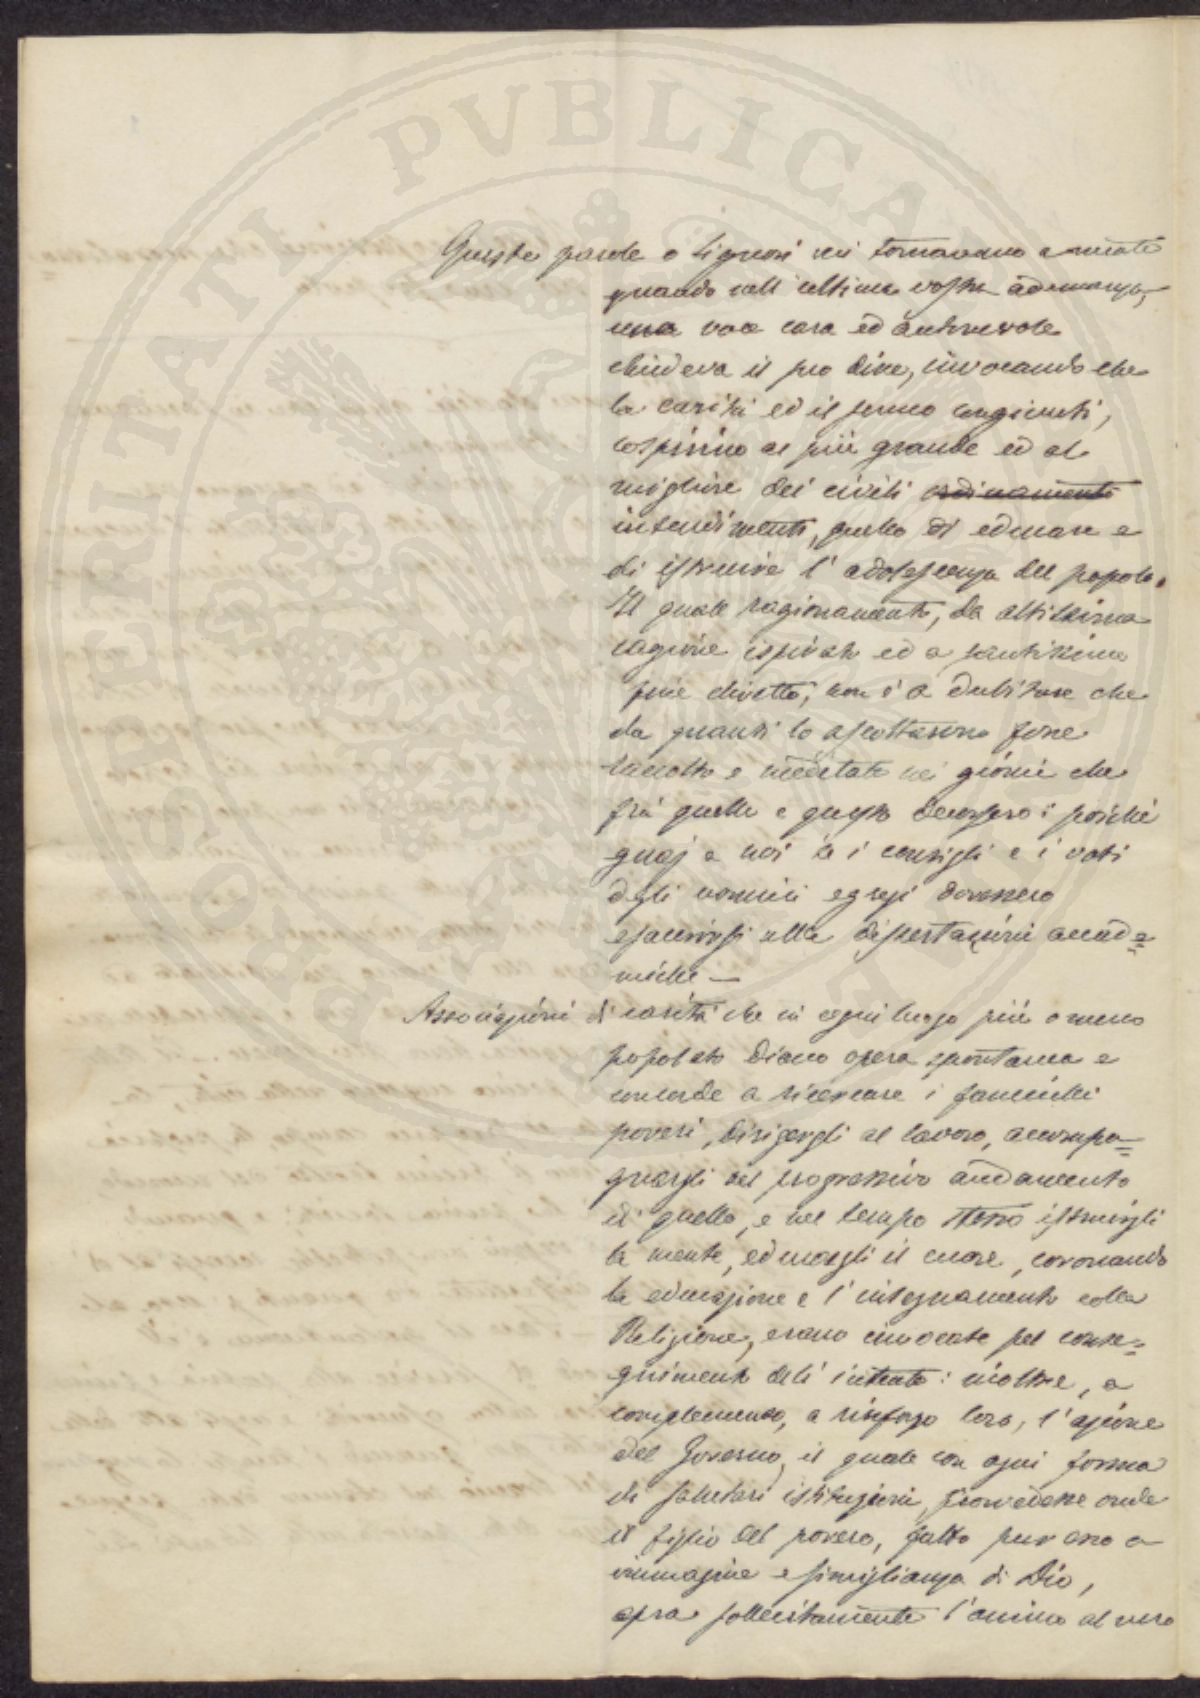 PROSPERITATI PVBLICAE
Queste parole o Signori mi tornavano a mente
quando nell'ultima vostra adunanza,
una voce cara ed autorevole
chiudeva il suo dire, invocando che
la carità ed il senno congiunti,
cospirino al più grande ed al
migliore dei civili ordinamenti
intendimenti, quello di educare e
di istruire l'adolescenza del popolo.
Il quale ragionamento, da altissima
cagione ispirato ed a santissimo
fine diretto, non è a dubitare che
da quanti lo ascoltarono fosse
raccolto e meditato nei giorni che
fra quello e questo decorsero: poichè
guaj a noi se i consigli e i voti
degli uomini egregi dovessero
esaurirsi alle dissertazioni accade=
miche —
Associazioni di carità che in ogni luogo più o meno
popolato diano opera spontanea e
concorde a ricercare i fanciulli
poveri, dirigergli al lavoro, accompa=
gnargli nel progressivo andamento
di quello, e nel tempo stesso istruirgli
la mente, educargli il cuore, coronando
la educazione e l'insegnamento colla
Religione, erano invocate pel conse=
guimento dell'intento: inoltre, a
complemento, a rinforzo loro, l'azione
del Governo, il quale con ogni forma
di salutari istituzioni, provvedesse onde
il figlio del povero, fatto pur esso a
immagine e simiglianza di Dio,
apra sollecitamente l'animo al vero